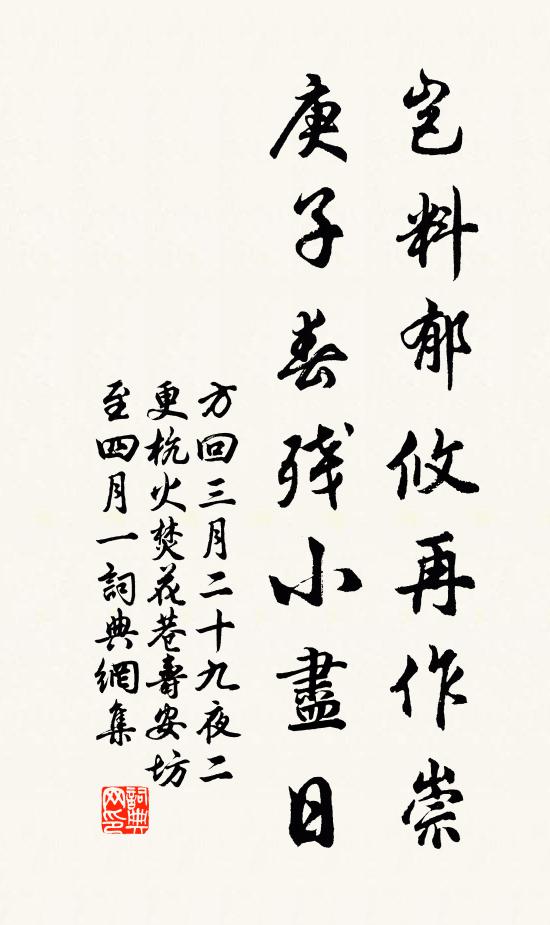 岂料郁攸再作崇
庚子春残小盡日
方回三月二十九夜二
更杭火焚花巷壽安坊
至四月一詞典網集
詞典网印